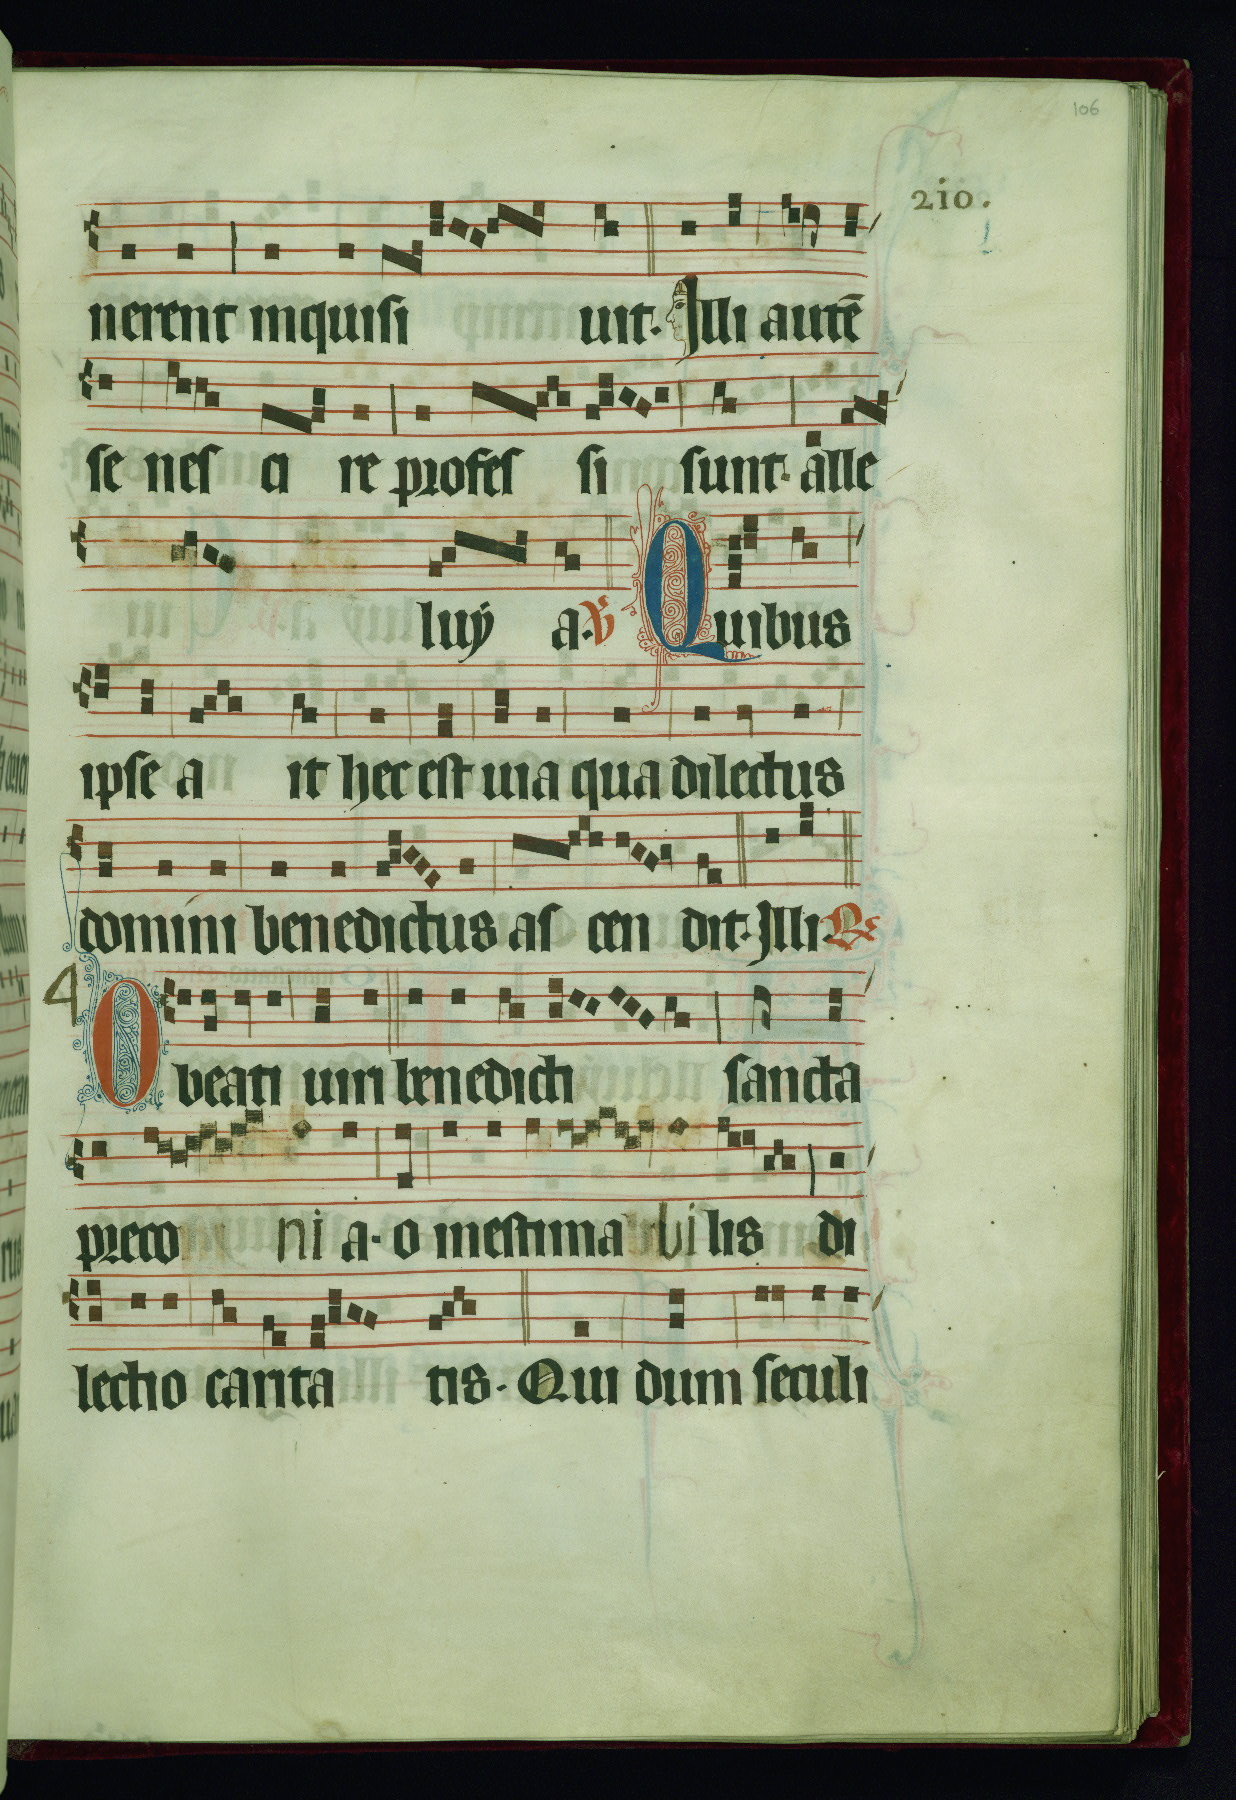 106
210.
nerent inquisi uit. Illi autē
se nes ci re profes si sunt. alle
luy a. ℣ Quibus
ipse a it hec est uia qua dilectus
domini benedictus as cen dit. Illi. ℟
4
O beati uiri benedicti sancta
preco ni a. o inestima bi lis di
lectio carita tis. Qui dum seculi